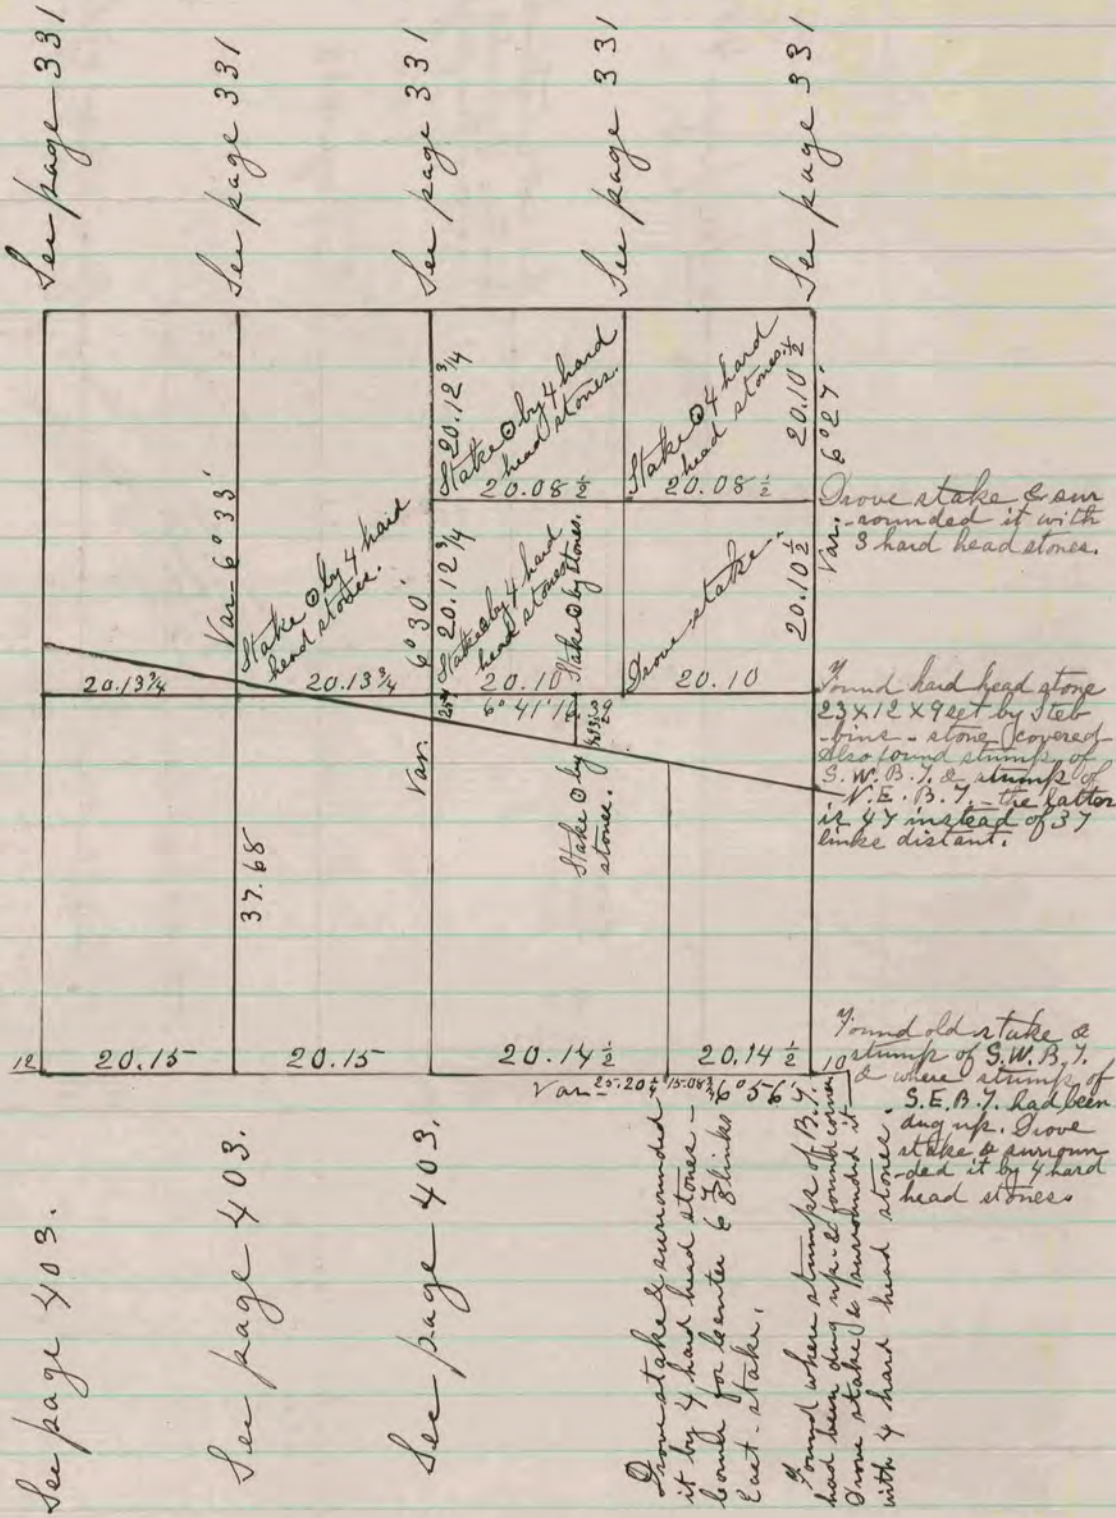 See page 331
See page 331
See page 331
See page 331
See page 331
Var. 6° 33'
Stake ⊙ by 4 hard
head stones.
20.12 3/4
Stake ⊙ by 4 hard
head stones.
20.08 1/2
Stake ⊙ 4 hard
head stones.
20.10 1/2
20.08 1/2
Var. 6° 27'
Drove stake & sur
-rounded it with
3 hard head stones.
6° 30'
20.12 3/4
Stake ⊙ by 4 hard
head stones.
Stake ⊙ by stones.
Drove stake.
20.10 1/2
20.13 3/4
20.13 3/4
20.10
20.10
6° 41'
Var.
Found hard head stone
23 x 12 x 9 set by Steb
-bins - stone covered
Also found stump of
S. W. B. T. & stump of
N. E. B. T. - the latter
is 47 instead of 37
links distant.
37.68
Stake ⊙ by
stones.
12
20.15
20.15
20.14 1/2
20.14 1/2
10
Var. 25.20 1/4 15.08 3/4 6° 56'
Found old stake &
stump of S. W. B. T.
& where stump of
S. E. B. T. had been
dug up. Drove
stake & surroun
-ded it by 4 hard
head stones
See page 403.
See page 403.
See page 403.
Drove stake & surrounded
it by 4 hard head stones -
corner for center 6 7/8 links
East - stake.
Found where stumps of B. T.
had been dug up - & found corner
Drove stake & surrounded it
with 4 hard head stones.